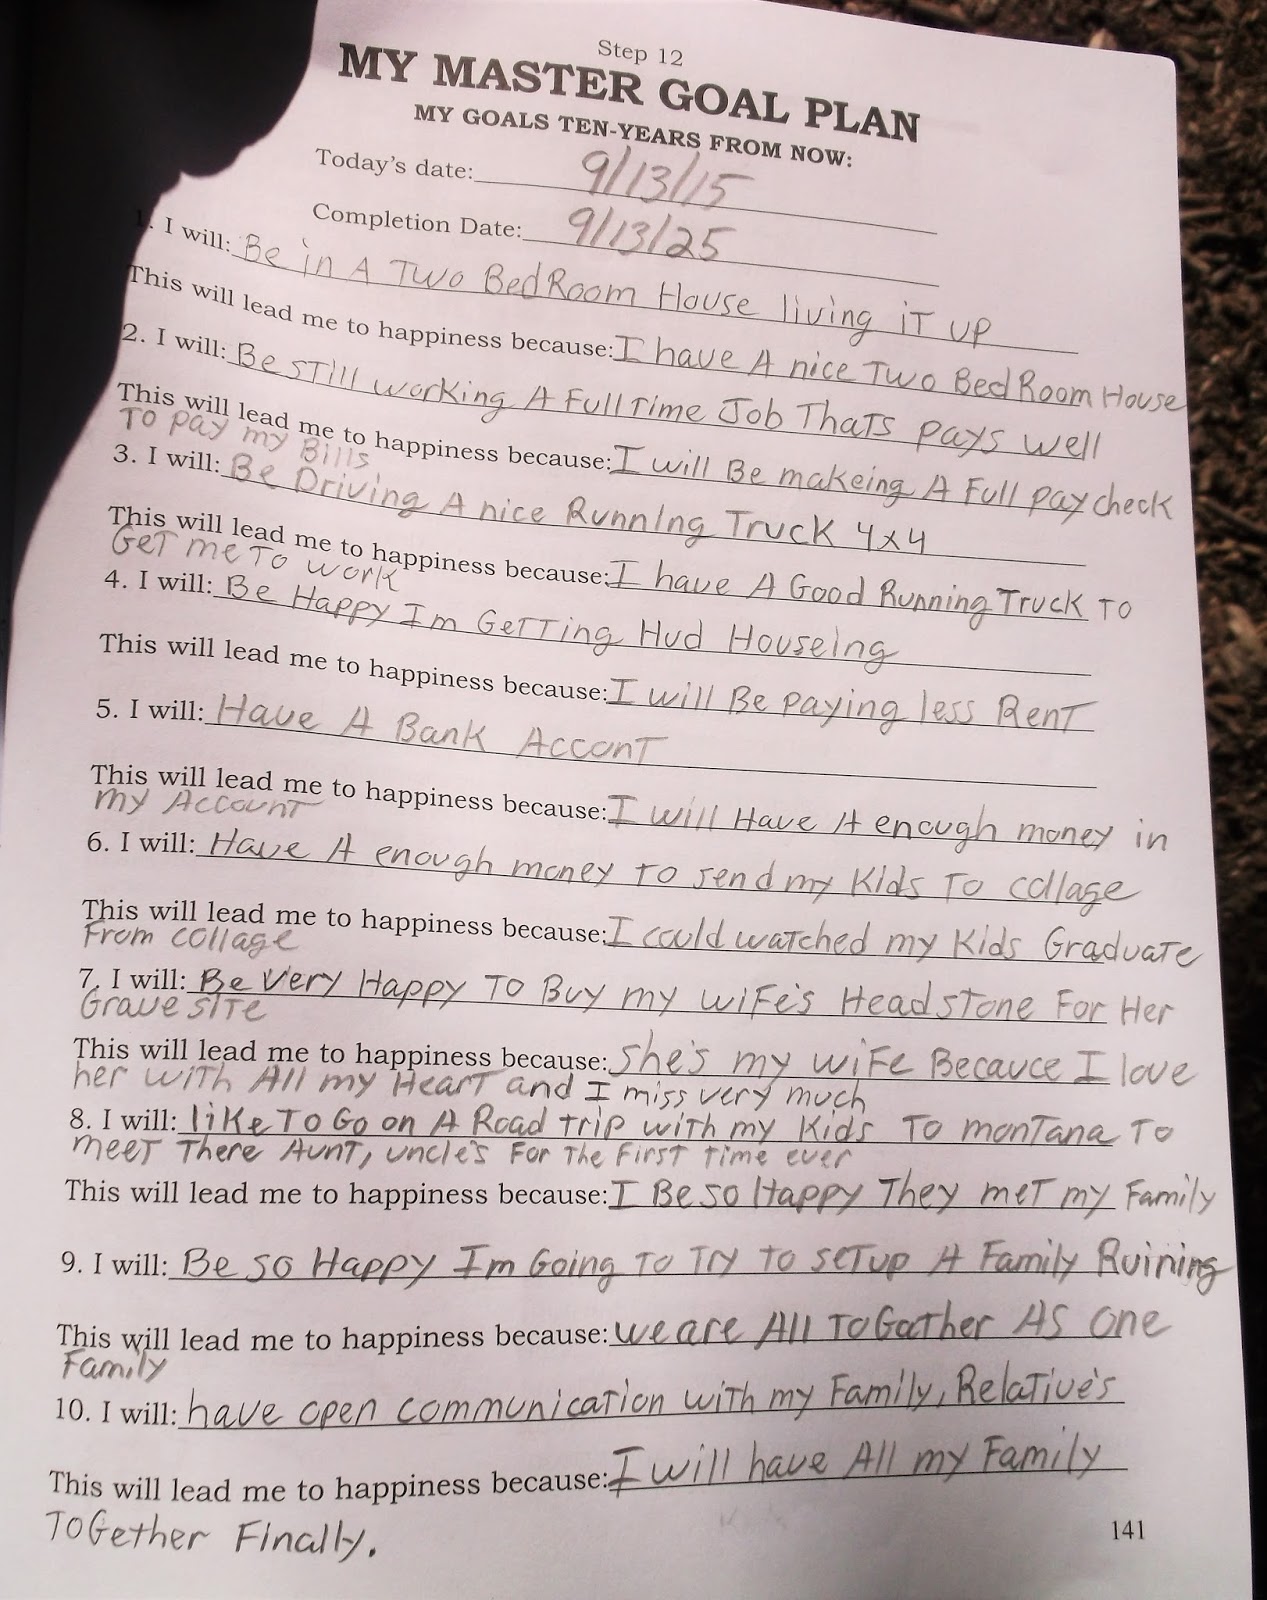 Step 12
MY MASTER GOAL PLAN
MY GOALS TEN-YEARS FROM NOW:
Today's date: 9/13/15
Completion Date: 9/13/25
1. I will: Be in A Two BedRoom House living iT up
This will lead me to happiness because: I have A nice Two BedRoom House
2. I will: Be STill working A FullTime Job ThaTs pays well
This will lead me to happiness because: I will Be makeing A Full pay check
To pay my Bills
3. I will: Be Driving A nice Running Truck 4x4
This will lead me to happiness because: I have A Good Running Truck To
GeT me To work
4. I will: Be Happy Im GeTTing Hud Houseing
This will lead me to happiness because: I will Be paying less RenT
5. I will: Have A Bank AcconT
This will lead me to happiness because: I will Have A enough money in
my AccounT
6. I will: Have A enough money To send my Kids To collage
This will lead me to happiness because: I could waTched my Kids GraduaTe
From collage
7. I will: Be Very Happy To Buy my wiFe's Headstone For Her
Grave siTe
This will lead me to happiness because: she's my wiFe Becauce I love
her wiTh All my HearT and I miss very much
8. I will: like To Go on A Road trip wiTh my Kids To monTana To
meeT There AunT, uncle's For The First time ever
This will lead me to happiness because: I Be so Happy They meT my Family
9. I will: Be so Happy Im Going To Try To seTup A Family Ruining
This will lead me to happiness because: we are All ToGather As one
Family
10. I will: have open communicaTion wiTh my Family, RelaTive's
This will lead me to happiness because: I will have All my Family
ToGether Finally.
141